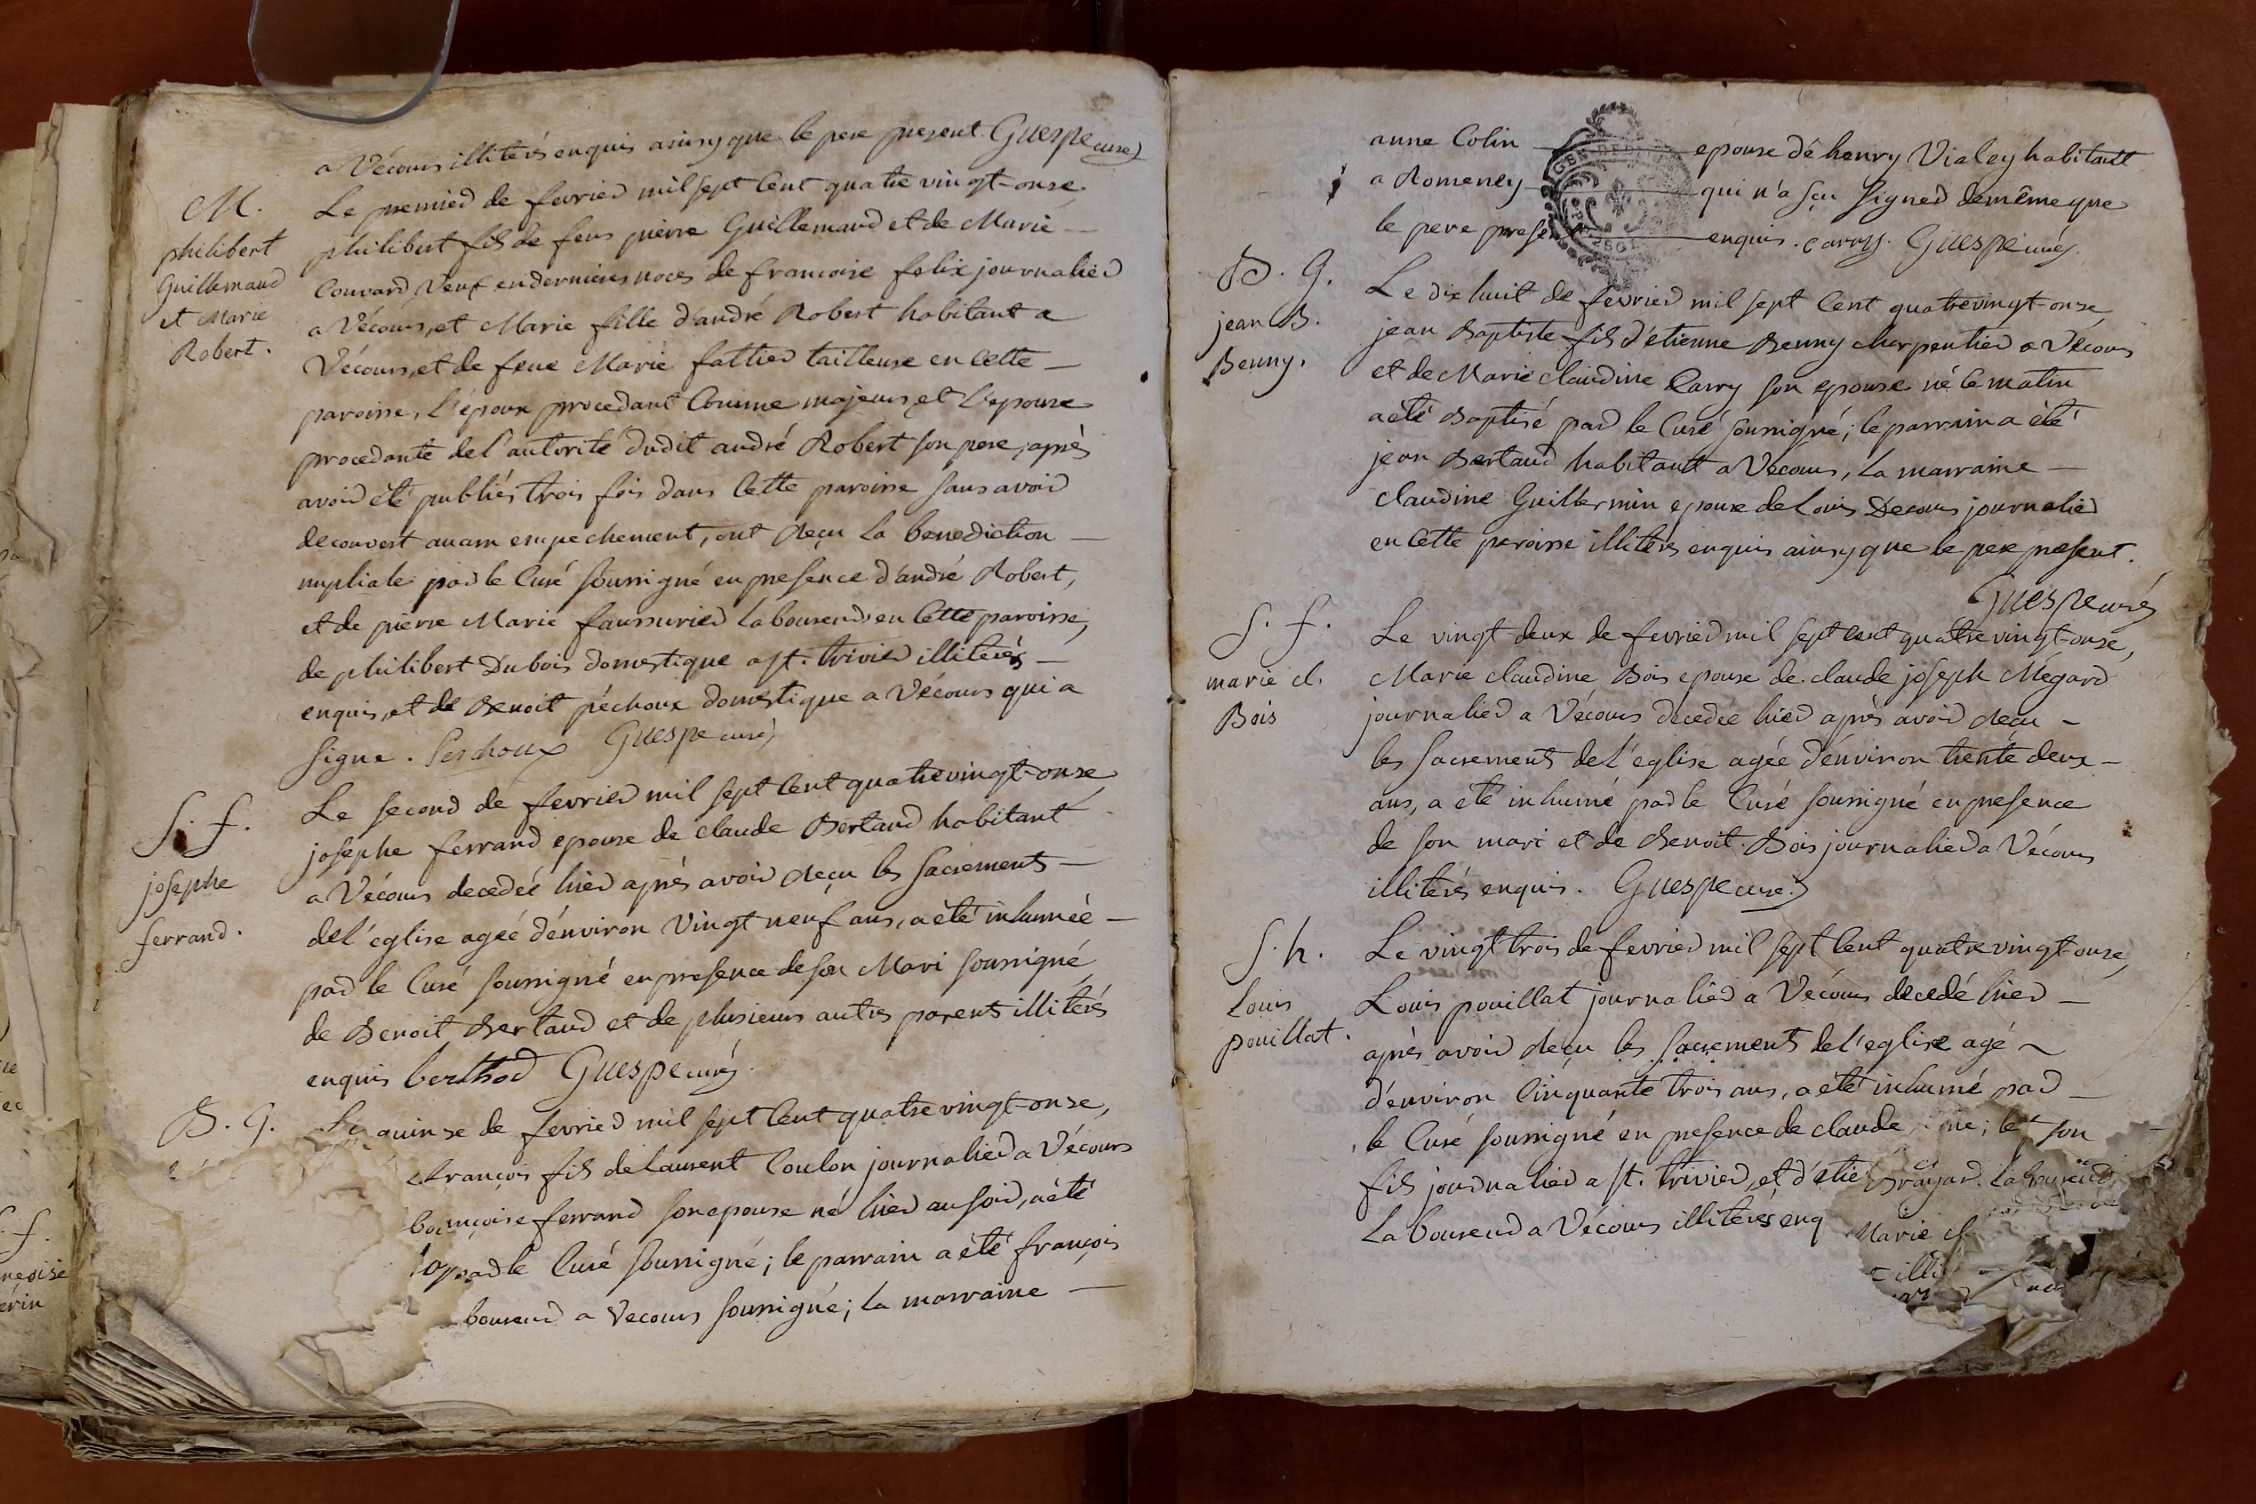 a Vécours illiterés enquis ainsy que le pere present. Guespe curé
M.
philibert
Guillemaud
et Marie
Robert.
Le premier de fevrier mil sept Cent quatre vingt-onze,
philibert fils de feus pierre Guillemaud et de Marie
Couvard, Veuf en dernieres noces de francoise felix journalier
a Vécours, et Marie fille d'andré Robert habitant a
Vécours, et de feue Marie fattier tailleuse en Cette
paroisse, l'époux procedant Comme majeur, et l'epouse
procedante de l'autorité dudit andré Robert son pere, après
avoir été publiés trois fois dans Cette paroisse sans avoir
decouvert aucun empechement, ont reçu la benediction
nuptiale par le Curé soussigné en presence d'andré Robert,
et de pierre Marie faussurier laboureur en Cette paroisse,
de philibert Dubois domestique a St. trivier illiterés
enquis, et de Benoit péchoux domestique a Vécours qui a
signé. Peschoux Guespe curé
S. f.
josephe
ferrand.
Le second de fevrier mil sept Cent quatre vingt-onze,
josephe ferrand epouse de claude Bertaud habitant
a Vécours decedée hier après avoir reçu les sacrements
de l'eglise agée d'environ Vingt neuf ans, a été inhumée
par le Curé soussigné en presence de son Mari soussigné
de Benoit Bertaud et de plusieurs autres parents illiterés
enquis berthod Guespe curé
B. g.
Le quinze de fevrier mil sept Cent quatre vingt-onze,
françois fils de Laurent Coulon journalier a Vécours
françoise ferrand son epouse né hier au soir, a été
par le Curé soussigné; le parrain a été françois
boureur a Vecours soussigné; la marraine
anne Colin epouse de henry Vialey habitant
a Romeney qui n'a sçu signer de même que
le pere present enquis. carry. Guespe curé.
B. g.
jean B.
Benny.
Le dix huit de fevrier mil sept Cent quatre vingt-onze,
jean Baptiste fils d'etienne Benny charpentier a Vécours
et de Marie claudine Carry son epouse né le matin
a été Baptisé par le Curé soussigné; le parrain a été
jean Bertaud habitant a Vecours, la marraine
claudine Guillermin epouse de Louis Decours journalier
en Cette paroisse illiterés enquis ainsy que le pere present.
Guespe curé
S. f.
marie cl.
Bois
Le vingt deux de fevrier mil sept cent quatre vingt-onze,
Marie claudine Bois epouse de claude joseph Megard
journalier a Vécours decedée hier après avoir reçu
les sacrements de l'eglise agée d'environ trente deux
ans, a été inhumé par le Curé soussigné en presence
de son mari et de Benoit Bois journalier a Vécours
illiterés enquis. Guespe curé
S. h.
Louis
pouillat.
Le vingt trois de fevrier mil sept Cent quatre vingt-onze,
Louis pouillat journalier a Vécours decedé hier
après avoir reçu les sacrements de l'eglise agé
d'environ Cinquante trois ans, a été inhumé par
le Curé soussigné en presence de claude son
fils journalier a St. trivier, et d'etie
Laboureur a Vécours illiterés enq
Marie cl
illi